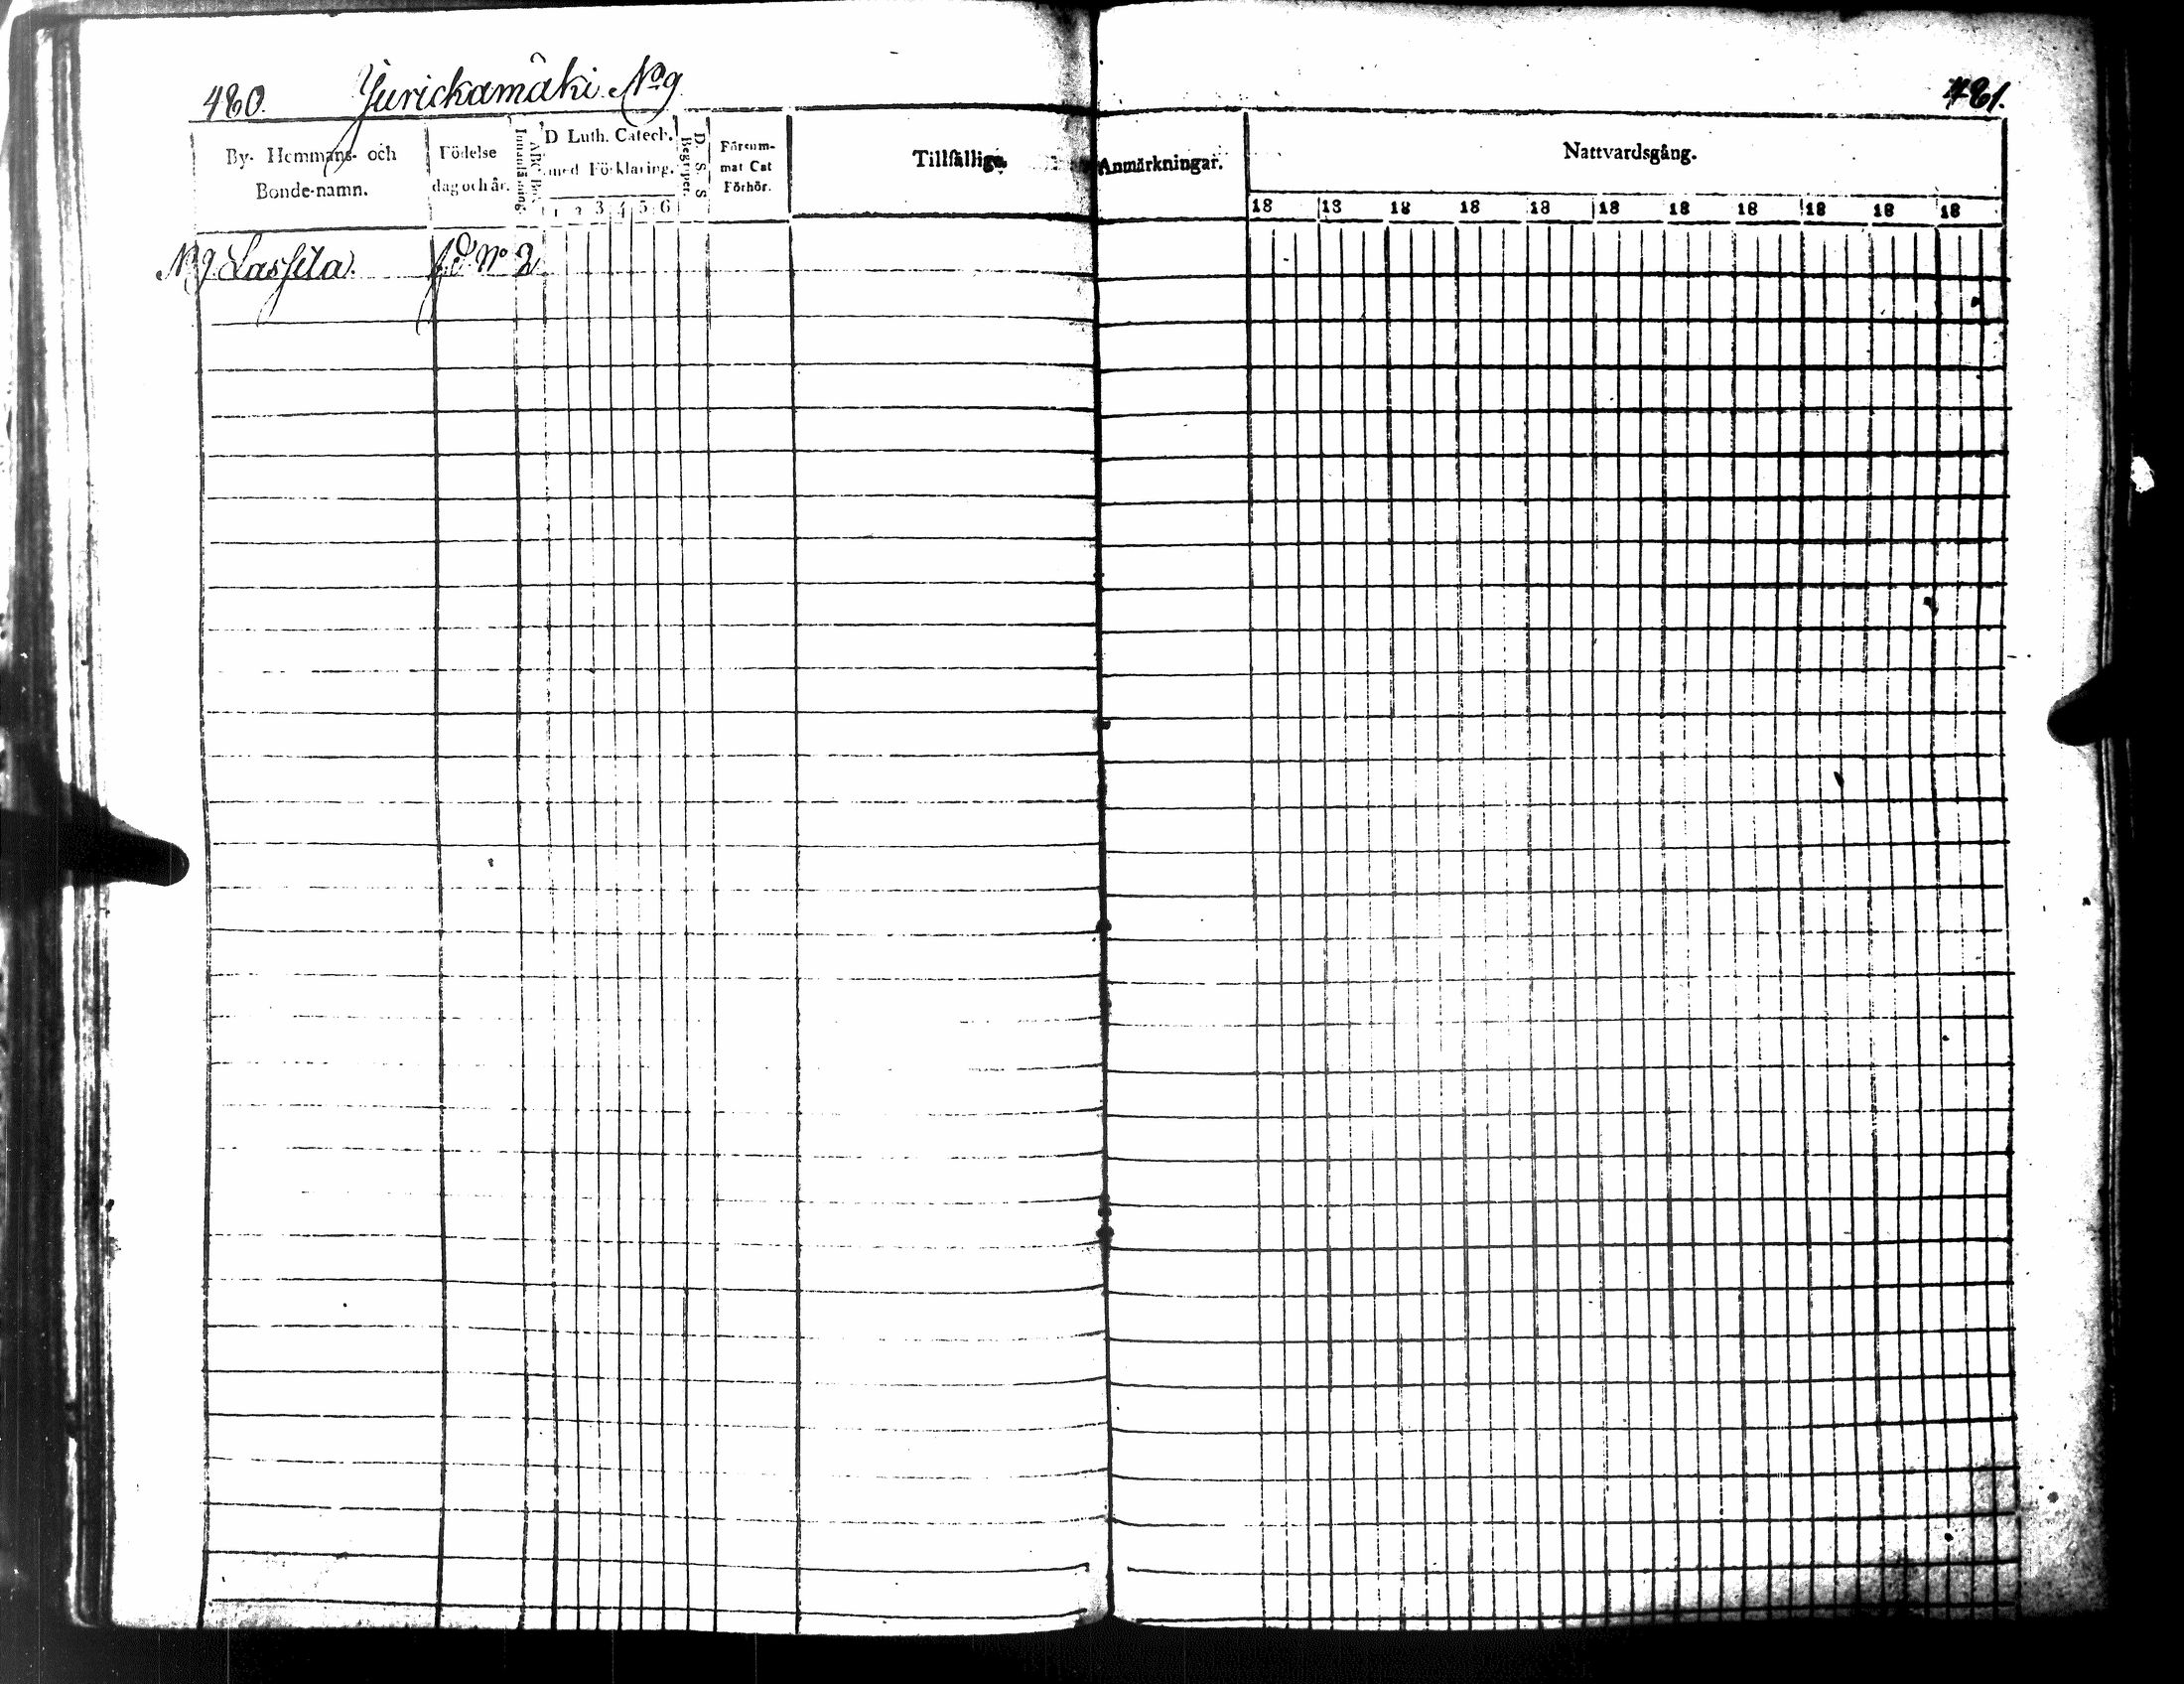 480. Jurickamäki No 9
481.
By- Hemmans- och Bonde-namn.
Födelse dag och år.
Innanläsning.
ABC Bok
D Luth. Catech. med Förklaring.
1 2 3 4 5 6
D. S. S. Begreper.
Försummat Cat Förhör.
Tillfällige Anmärkningar.
Nattvardsgång.
18 18 18 18 18 18 18 18 18 18 18
N 9. Lassila. No 2